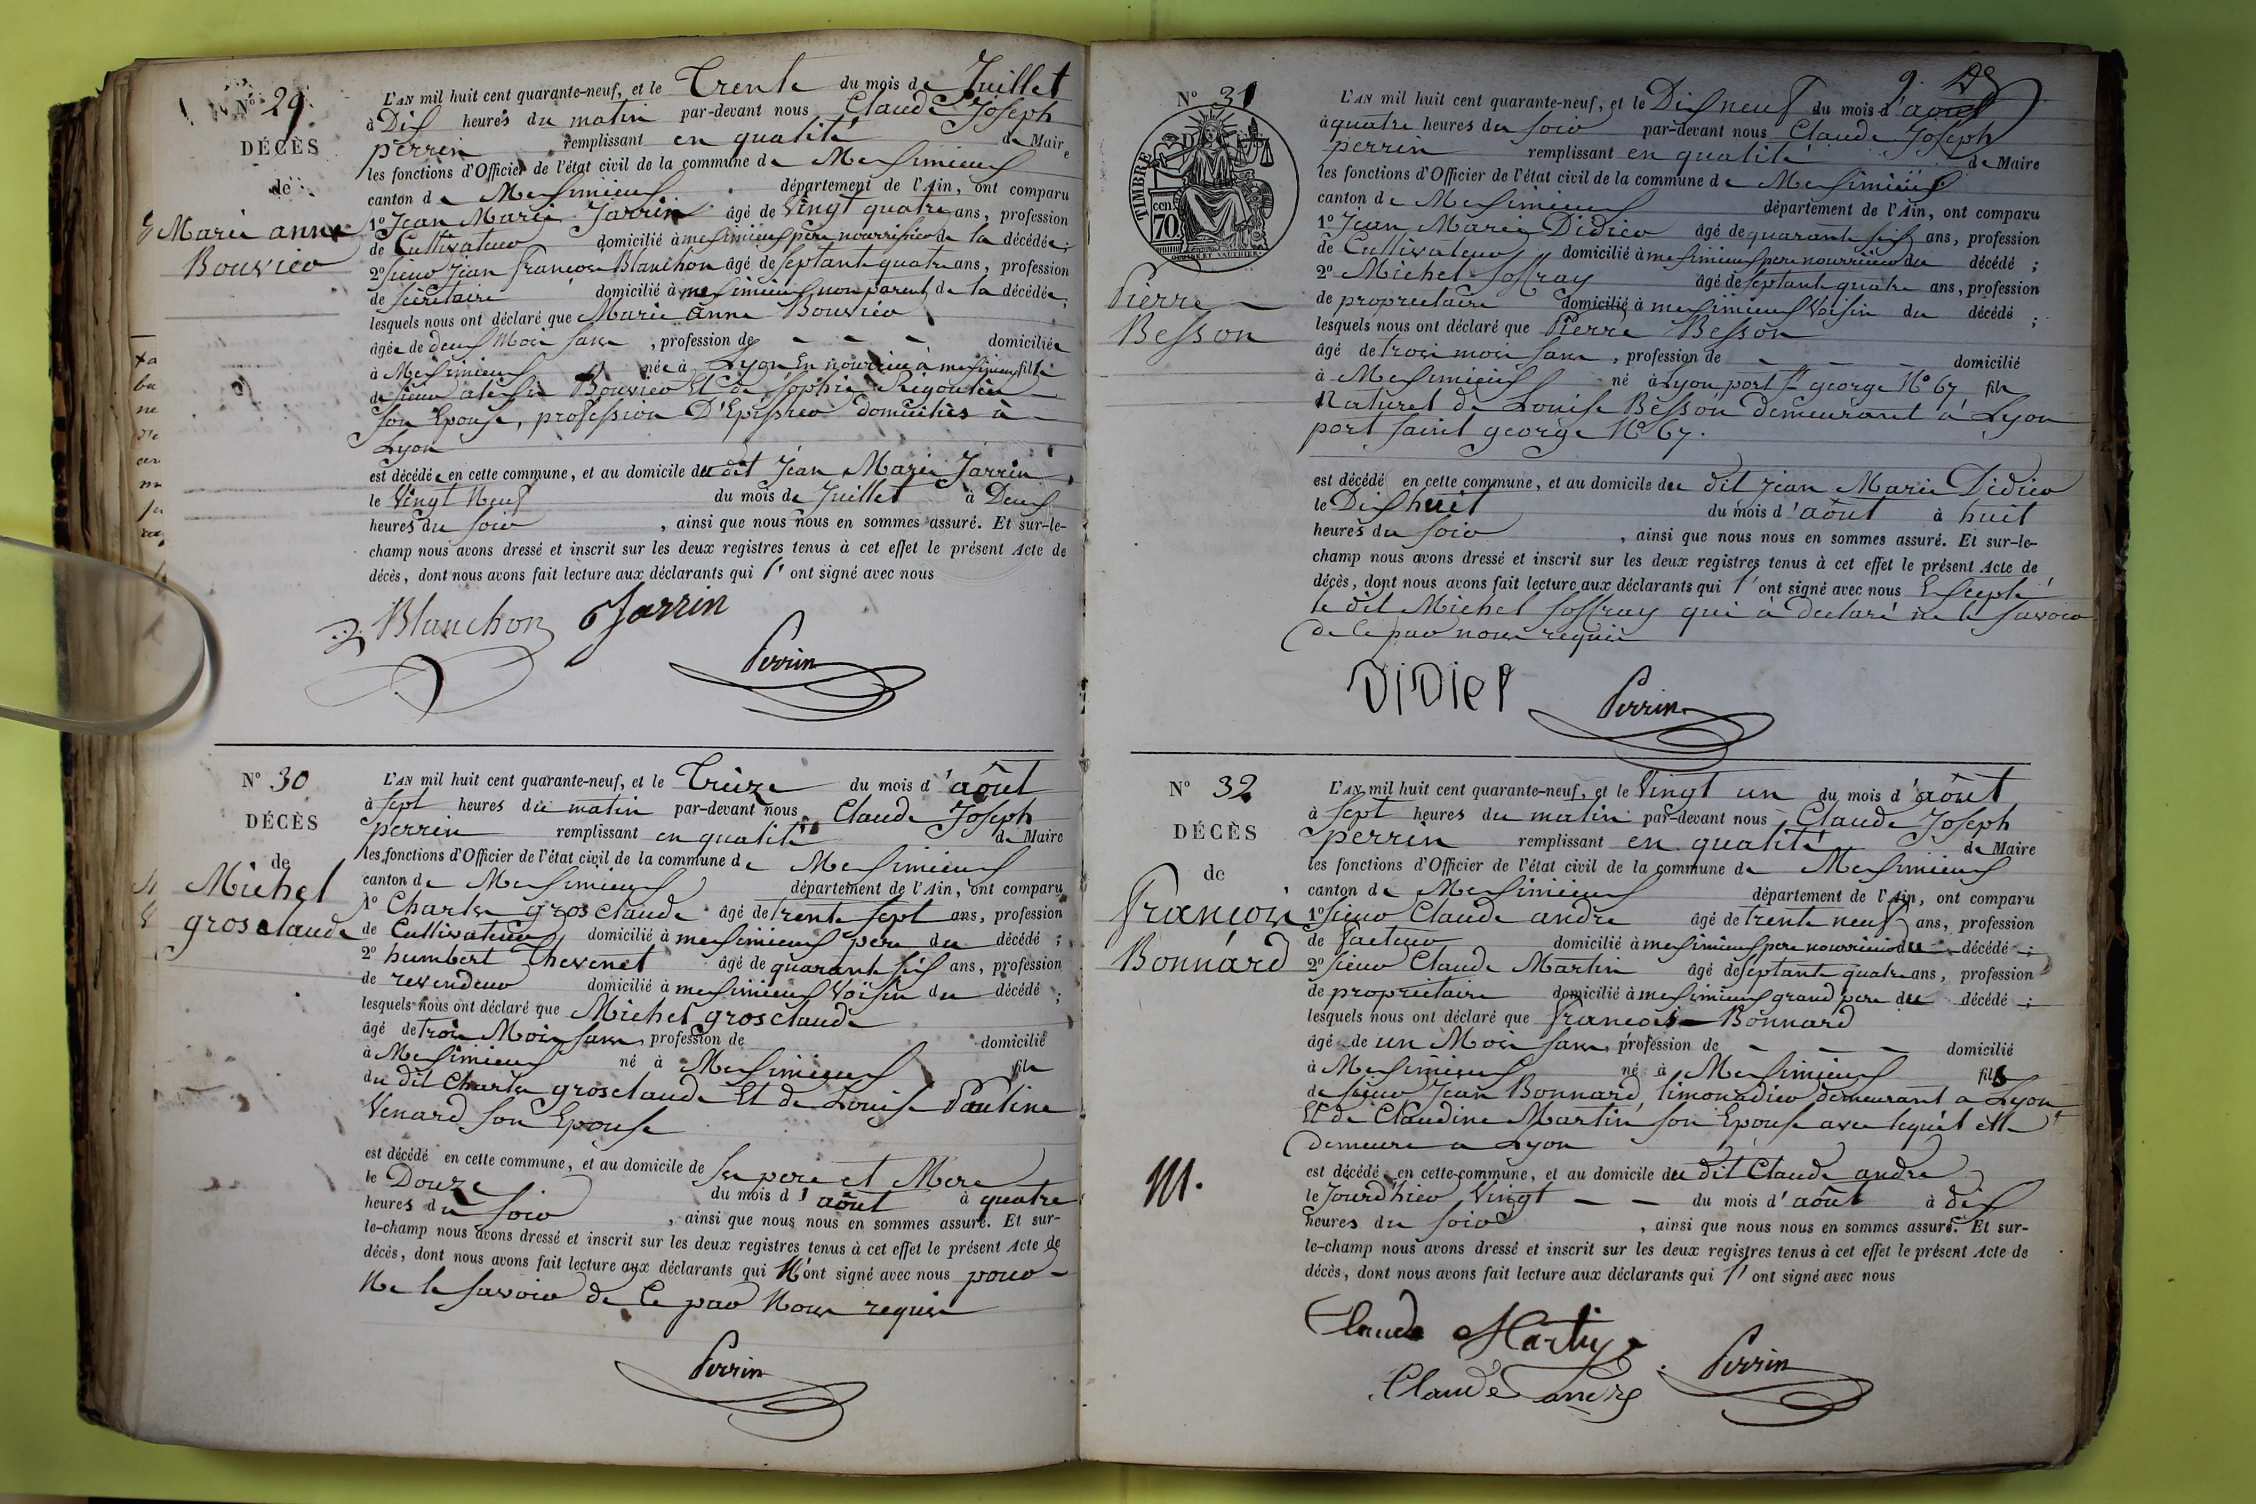 N° 29
DÉCÈS
de
Marie anne
Bouvier
L'AN mil huit cent quarante-neuf, et le Trente du mois de Juillet
à Dix heures du matin par-devant nous Claude Joseph
perrin remplissant en qualité de Maire
les fonctions d'Officier de l'état civil de la commune de Meximieux
canton de Meximieux département de l'Ain, ont comparu
1° Jean Marie Jarrin âgé de Vingt quatre ans, profession
de Cultivateur domicilié à meximieux père nourricier de la décédée;
2° Sieur Jean françois Blanchon âgé de septante quatre ans, profession
de secrétaire domicilié à meximieux non parent de la décédée;
lesquels nous ont déclaré que Marie anne Bouvier
âgée de deux Mois sans, profession de - - - domiciliée
à Meximieux née à Lyon En nourrice à meximieux fille
de sieur Bouvier Et de Sophie
son Epouse, profession D'Epissier domiciliés à
Lyon
est décédée en cette commune, et au domicile du dit Jean Marie Jarrin
le Vingt Neuf du mois de Juillet à Deux
heures du soir, ainsi que nous nous en sommes assuré. Et sur-le-
champ nous avons dressé et inscrit sur les deux registres tenus à cet effet le présent Acte de
décès, dont nous avons fait lecture aux déclarants qui l'ont signé avec nous
Blanchon Jarrin
Perrin
N° 30
DÉCÈS
de
Michel
grosclaude
L'AN mil huit cent quarante-neuf, et le Treize du mois d'août
à sept heures du matin par-devant nous Claude Joseph
perrin remplissant en qualité de Maire
les fonctions d'Officier de l'état civil de la commune de Meximieux
canton de Meximieux département de l'Ain, ont comparu
1° Charles grosclaude âgé de trente sept ans, profession
de Cultivateur domicilié à meximieux père du décédé;
2° humbert thevenet âgé de quarante six ans, profession
de revendeur domicilié à meximieux Voisin du décédé;
lesquels nous ont déclaré que Michel grosclaude
âgé de trois Mois sans profession de domicilié
à Meximieux né à Meximieux fils
du dit Charles grosclaude Et de Louise Pauline
Venard son Epouse
est décédé en cette commune, et au domicile de ses pere et Mere
le Douze du mois d'août à quatre
heures du soir, ainsi que nous nous en sommes assuré. Et sur-
le-champ nous avons dressé et inscrit sur les deux registres tenus à cet effet le présent Acte de
décès, dont nous avons fait lecture aux déclarants qui N'ont signé avec nous pour
Ne le savoir de Ce par Nous requis
Perrin
9.
N° 31
TIMBRE
70
cent
Pierre
Besson
L'AN mil huit cent quarante-neuf, et le Dix neuf du mois d'août
à quatre heures du soir par-devant nous Claude Joseph
perrin remplissant en qualité de Maire
les fonctions d'Officier de l'état civil de la commune de Meximieux
canton de Meximieux département de l'Ain, ont comparu
1° Jean Marie Didier âgé de quarante six ans, profession
de Cultivateur domicilié à meximieux pere nourricier du décédé;
2° Michel Soffray âgé de septante quatre ans, profession
de proprietaire domicilié à meximieux Voisin du décédé;
lesquels nous ont déclaré que Pierre Besson
âgé de trois mois sans, profession de - - domicilié
à Meximieux né à Lyon port St george N° 67 fils
Naturel de Louise Besson demeurant à Lyon
port saint george N° 67.
est décédé en cette commune, et au domicile du dit Jean Marie Didier
le Dix huit du mois d'août à huit
heures du soir, ainsi que nous nous en sommes assuré. Et sur-le-
champ nous avons dressé et inscrit sur les deux registres tenus à cet effet le présent Acte de
décès, dont nous avons fait lecture aux déclarants qui l'ont signé avec nous Excepté
le dit Michel Soffray qui à declaré ne le savoir
de Ce par nous requis
DIDIER Perrin
N° 32
DÉCÈS
de
françois
Bonnard
M.
L'AN mil huit cent quarante-neuf, et le Vingt un du mois d'août
à sept heures du matin par-devant nous Claude Joseph
perrin remplissant en qualité de Maire
les fonctions d'Officier de l'état civil de la commune de Meximieux
canton de Meximieux département de l'Ain, ont comparu
1° sieur Claude andre âgé de trente neuf ans, profession
de facteur domicilié à meximieux pere nourricier du décédé;
2° sieur Claude Martin âgé de septante quatre ans, profession
de proprietaire domicilié à meximieux grand pere du décédé;
lesquels nous ont déclaré que françois Bonnard
âgé de un Mois sans, profession de - - - domicilié
à Meximieux né à Meximieux fils
de sieur Jean Bonnard, limonadier demeurant a Lyon
Et de Claudine Martin son Epouse avec lequel elle
demeure a Lyon
est décédé en cette commune, et au domicile du dit Claude andre
le Jourd'hier Vingt - - du mois d'août à dix
heures du soir, ainsi que nous nous en sommes assuré. Et sur-
le-champ nous avons dressé et inscrit sur les deux registres tenus à cet effet le présent Acte de
décès, dont nous avons fait lecture aux déclarants qui l'ont signé avec nous
Claude Martin
Claude andré Perrin